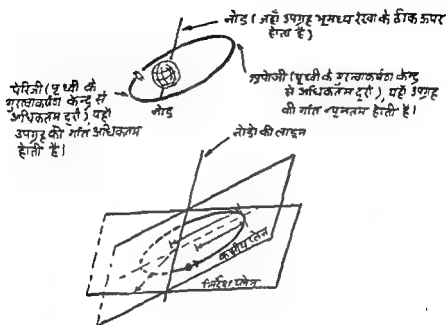 नोड (जहाँ उपग्रह भूमध्य रेखा के ठीक ऊपर
होता है)
पेरिजी (पृथ्वी के
गुरुत्वाकर्षण केन्द्र से
अधिकतम दूरी), यहाँ
उपग्रह की गति अधिकतम
होती है।
नोड
अपोजी (पृथ्वी के गुरुत्वाकर्षण केन्द्र
से अधिकतम दूरी) यहाँ उपग्रह
की गति न्यूनतम होती है।
नोडो की लाइन
कक्षीय प्लेन
निर्देश प्लेन